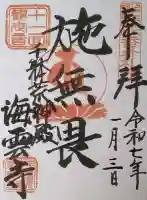 奉拝
令和七年
一月三日
施無畏
千躰荒神殿
海雲寺